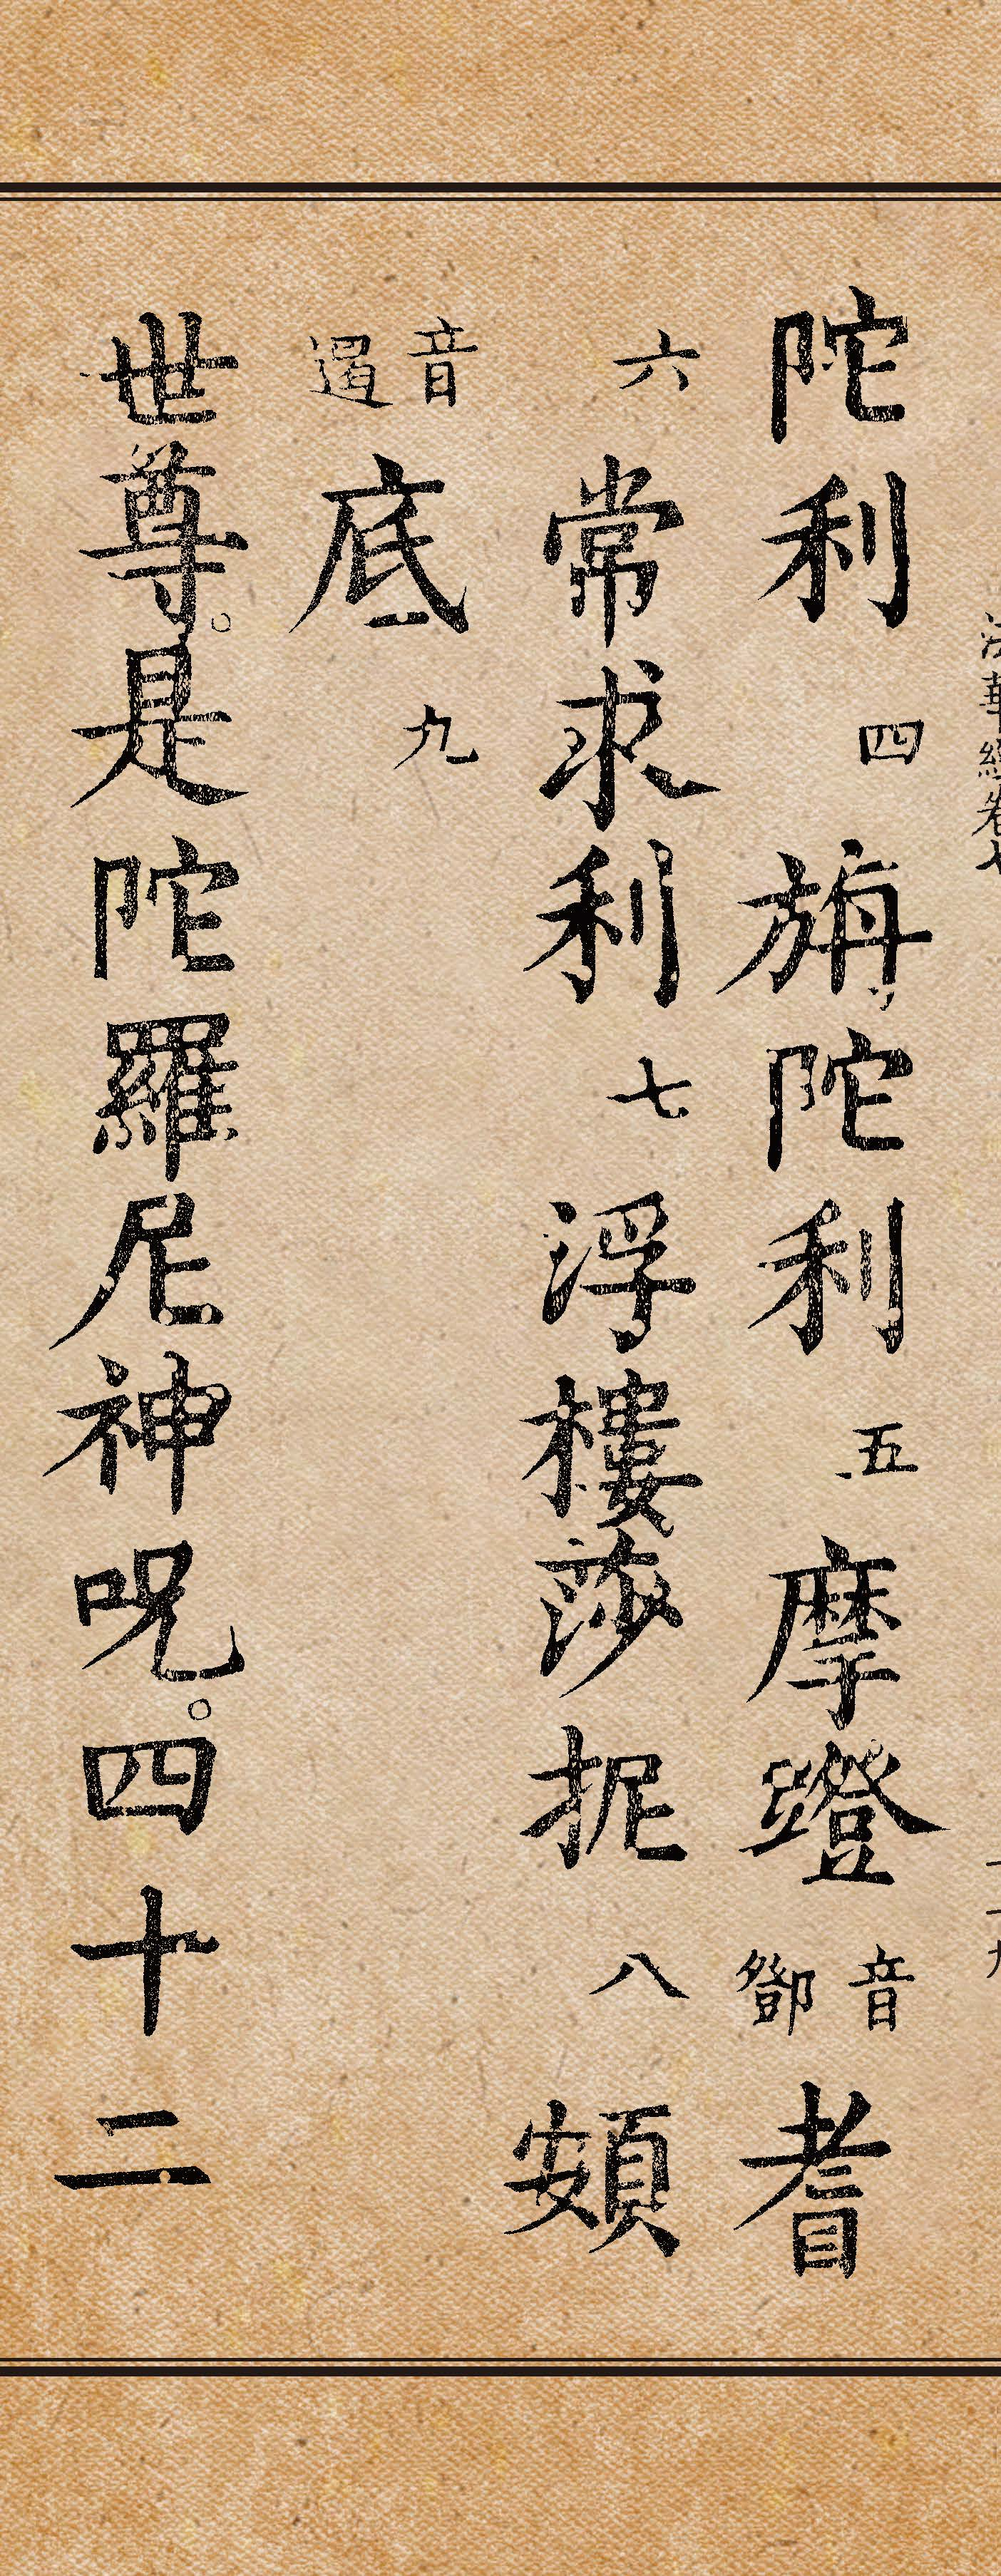 法華經卷七
陀利四旃陀利五摩蹬音鄧耆
六常求利七浮樓莎抳八頞
音遏底九
世尊。是陀羅尼神呪。四十二